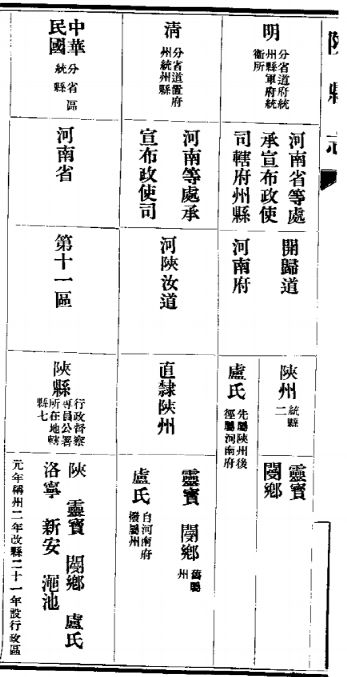 陝縣志
明 分省道府統州縣軍府統衞所
河南省等處承宣布政使司轄府州縣
開歸道
河南府
陝州 統縣二
靈寶
閿鄉
盧氏 先屬陝州後徑屬河南府
清 分省道置府州統州縣
河南等處承宣布政使司
河陝汝道
直隸陝州
靈寶 閿鄉 舊屬州
盧氏 自河南府撥屬州
中華民國 分省區統縣
河南省
第十一區
陝縣 行政督察專員公署所在地轄縣七
陝 靈寶 閿鄉 盧氏
洛寧 新安 澠池
元年稱州二年改縣二十一年設行政區